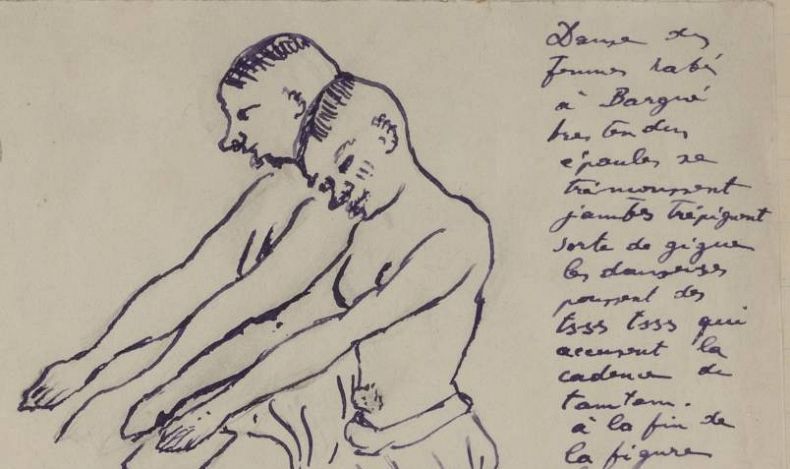 Danse des
femmes habé
à Bargué
bras tendus
épaules se
trémoussent
jambes trépignent
sorte de gigue
les danseuses
poussent des
tsss tsss qui
accusent la
cadence du
tamtam.
à la fin de
la figure